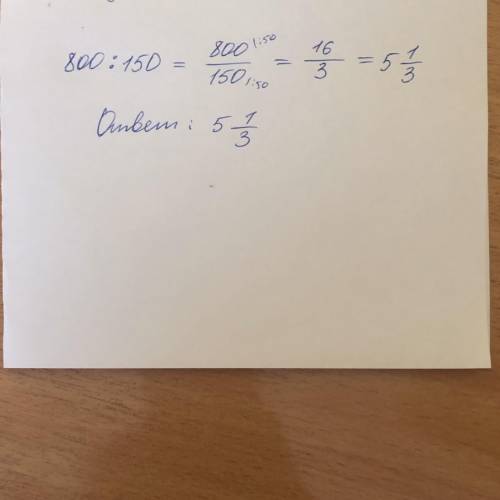 800 : 150 = 800 |:50 / 150 |:50 = 16/3 = 5 1/3
Ответ: 5 1/3